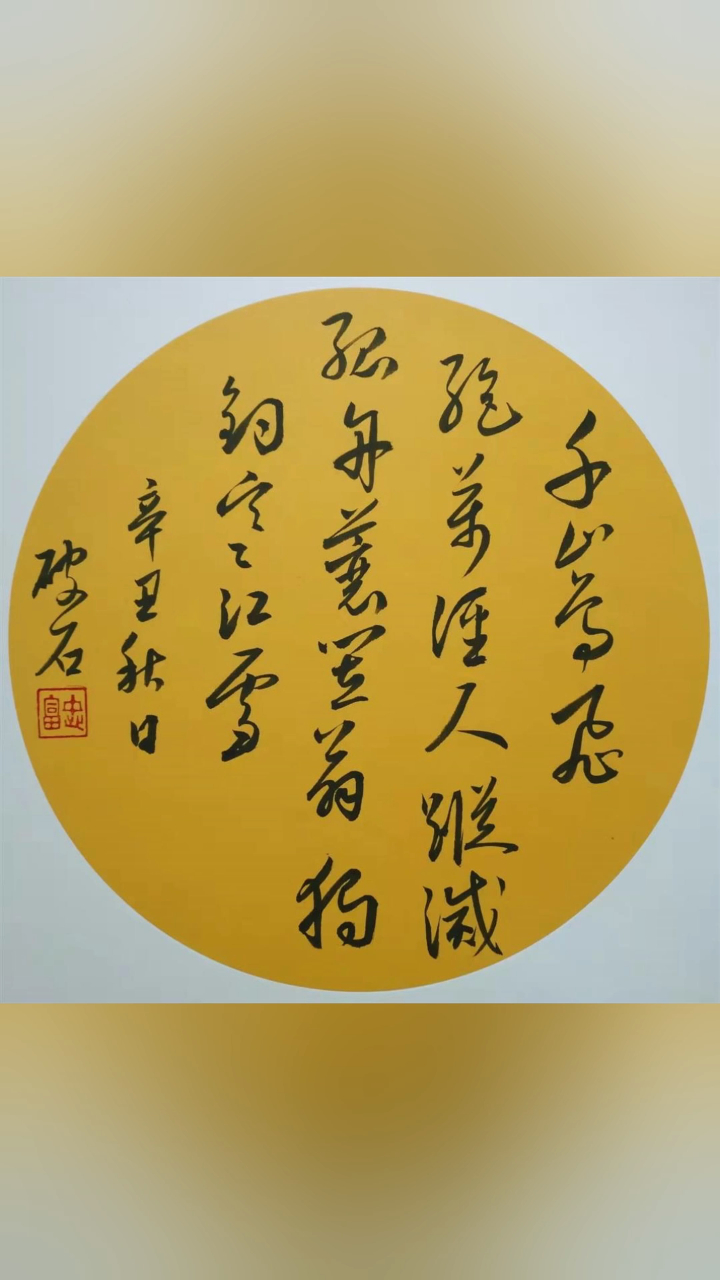 千山鳥飛
絕萬徑人蹤滅
孤舟蓑笠翁獨
釣寒江雪
辛丑秋日
破石
忠富